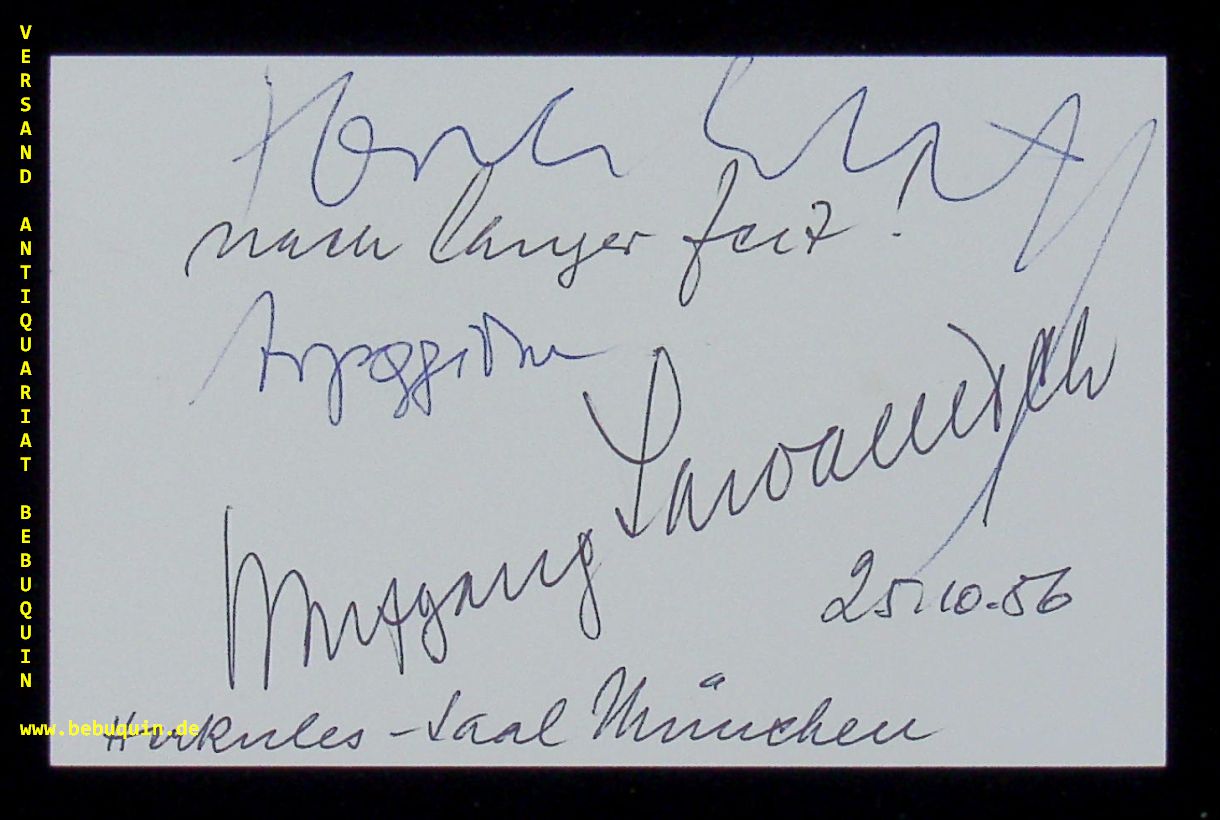 VERSAND ANTIQUARIAT BEBUQUIN
www.bebuquin.de
nach langer Zeit!
Arpeggione
Wolfgang Sawallisch
25.10.56
Herkules-Saal München